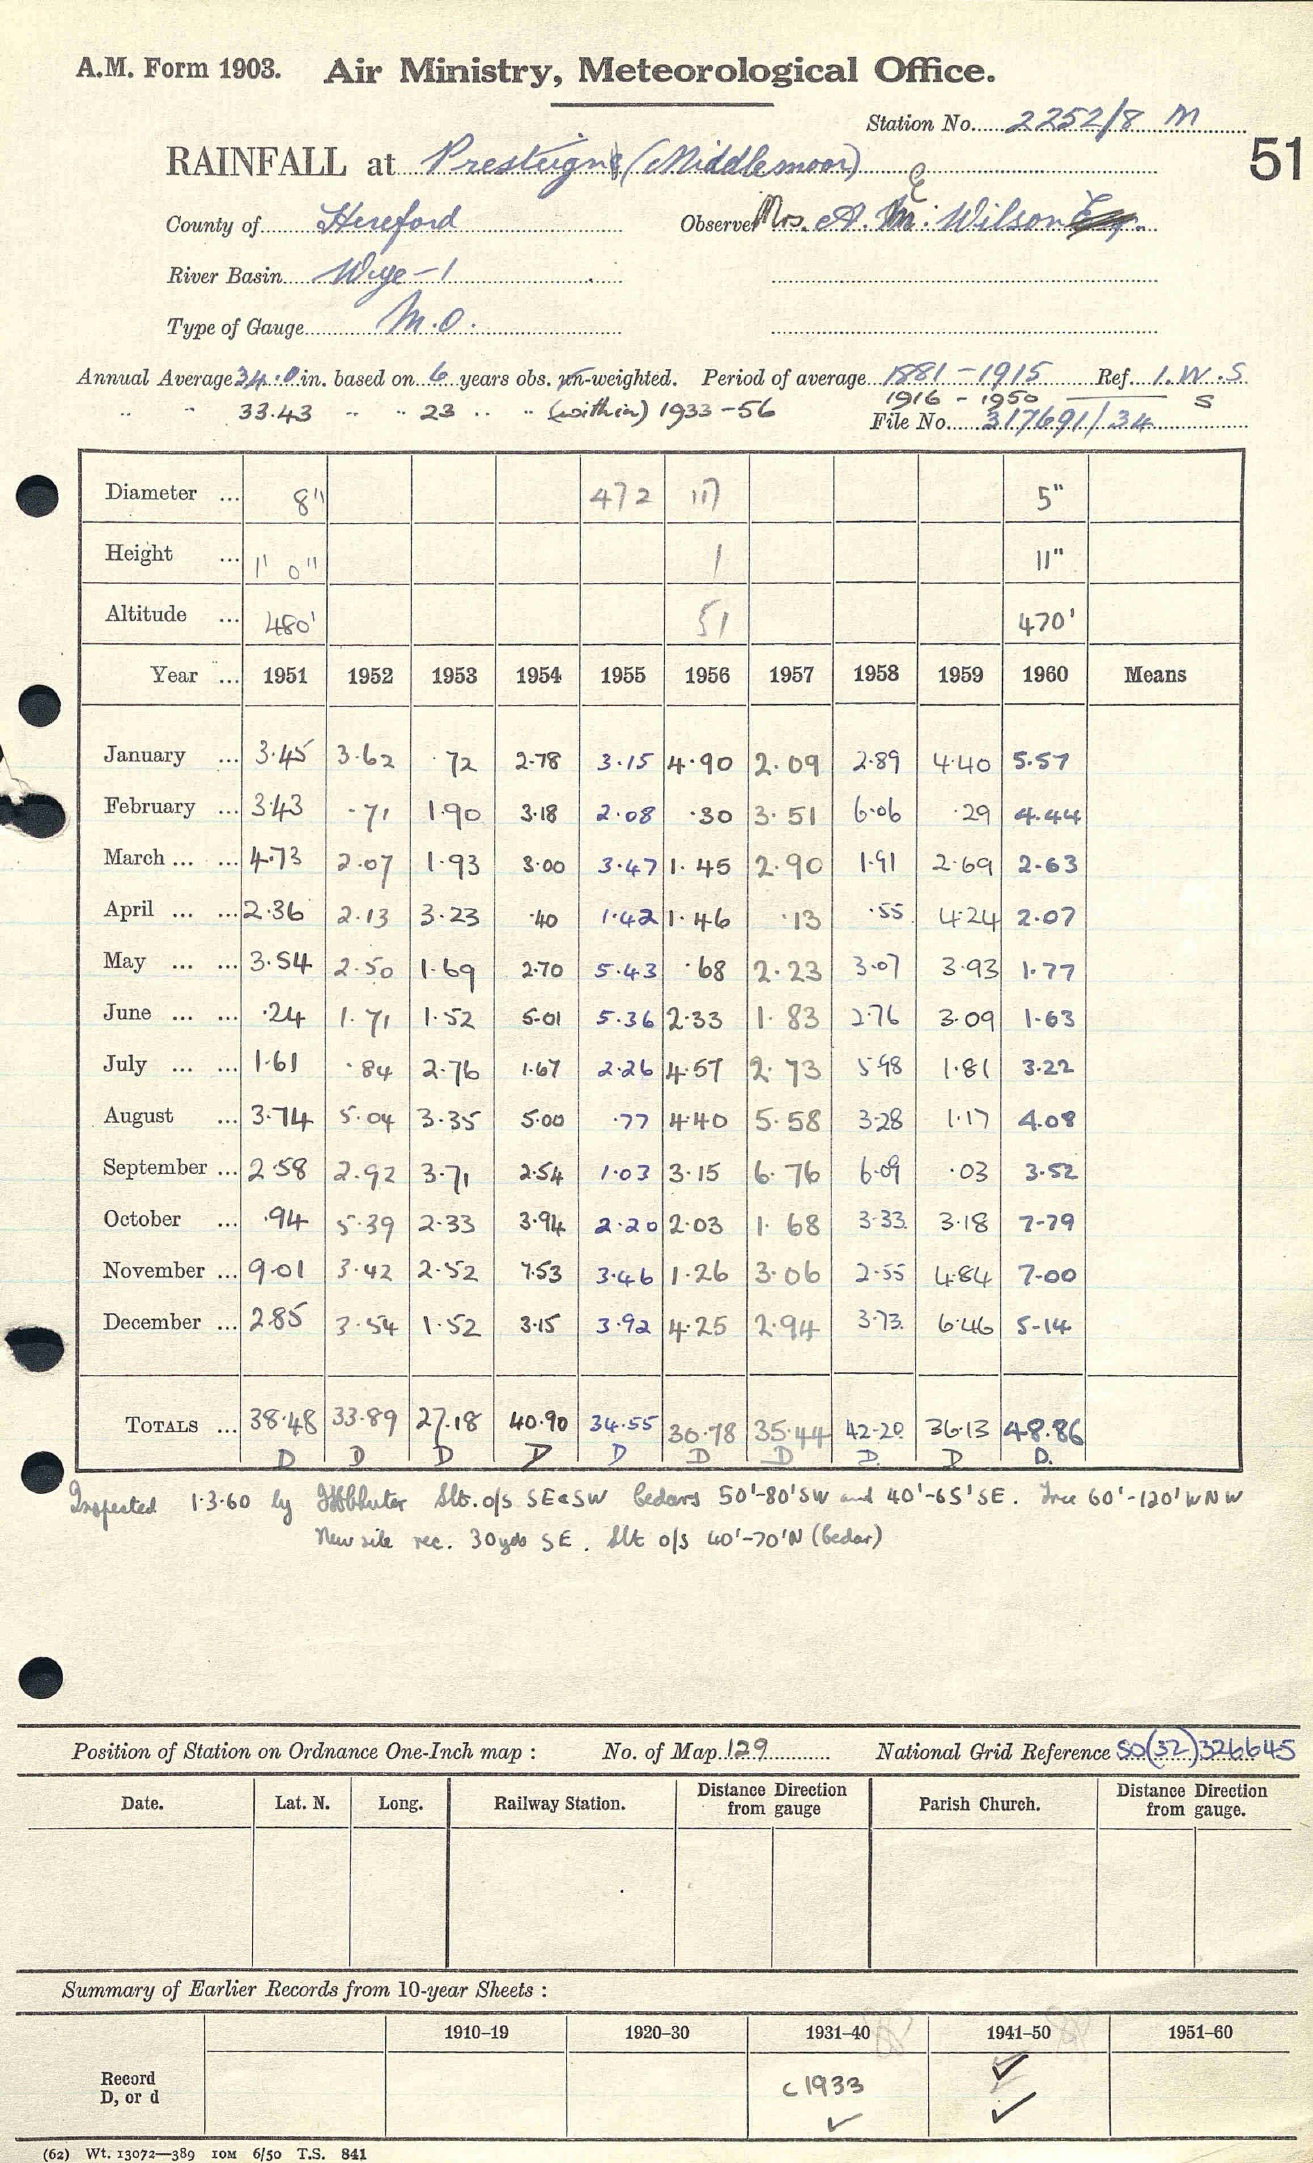 A.M. Form 1903. Air Ministry, Meteorological Office.
Station No. 2252/8 M
51
RAINFALL at Presteigne (Middlemoor)
County of Hereford Observer Mrs. A. E. Wilson
River Basin Wye-1
Type of Gauge M.O.
Annual Average 34.0 in. based on 6 years obs. un-weighted. Period of average 1881-1915 Ref. I.W.S
1916-1950 S
" " 33.43 " " 23 " " (within) 1933-56
File No. 317691/34
Diameter ... 8" 472 117 5"
Height ... 1' 0" 1 11"
Altitude ... 480' 51 470'
Year ... 1951 1952 1953 1954 1955 1956 1957 1958 1959 1960 Means
January ... 3.45 3.62 .72 2.78 3.15 4.90 2.09 2.89 4.40 5.57
February ... 3.43 .71 1.90 3.18 2.08 .30 3.51 6.06 .29 4.44
March ... ... 4.73 2.07 1.93 3.00 3.47 1.45 2.90 1.91 2.69 2.63
April ... ... 2.36 2.13 3.23 .40 1.42 1.46 .13 .55 4.24 2.07
May ... ... 3.54 2.50 1.69 2.70 5.43 .68 2.23 3.07 3.93 1.77
June ... ... .24 1.71 1.52 5.01 5.36 2.33 1.83 2.76 3.09 1.63
July ... ... 1.61 .84 2.76 1.67 2.26 4.57 2.73 5.98 1.81 3.22
August ... 3.74 5.04 3.35 5.00 .77 4.40 5.58 3.28 1.17 4.08
September ... 2.58 2.92 3.71 2.54 1.03 3.15 6.76 6.09 .03 3.52
October ... .94 5.39 2.33 3.94 2.20 2.03 1.68 3.33 3.18 7.79
November ... 9.01 3.42 2.52 7.53 3.46 1.26 3.06 2.55 4.84 7.00
December ... 2.85 3.54 1.52 3.15 3.92 4.25 2.94 3.73 6.46 5.14
TOTALS ... 38.48 33.89 27.18 40.90 34.55 30.78 35.44 42.20 36.13 48.86
D D D D D D D D. D D.
Inspected 1.3.60 by Slt. o/s SE & SW Cedars 50'-80' SW and 40'-65' SE. Tree 60'-120' WNW
New site rec. 30yds SE. Slt o/s 40'-70' N (Cedar)
Position of Station on Ordnance One-Inch map : No. of Map 129 National Grid Reference SO(32)326645
Date. Lat. N. Long. Railway Station. Distance Direction from gauge Parish Church. Distance Direction from gauge.
Summary of Earlier Records from 10-year Sheets :
1910-19 1920-30 1931-40 1941-50 1951-60
Record D, or d c 1933 ✓ ✓ ✓
(62) Wt. 13072—389 10M 6/50 T.S. 841